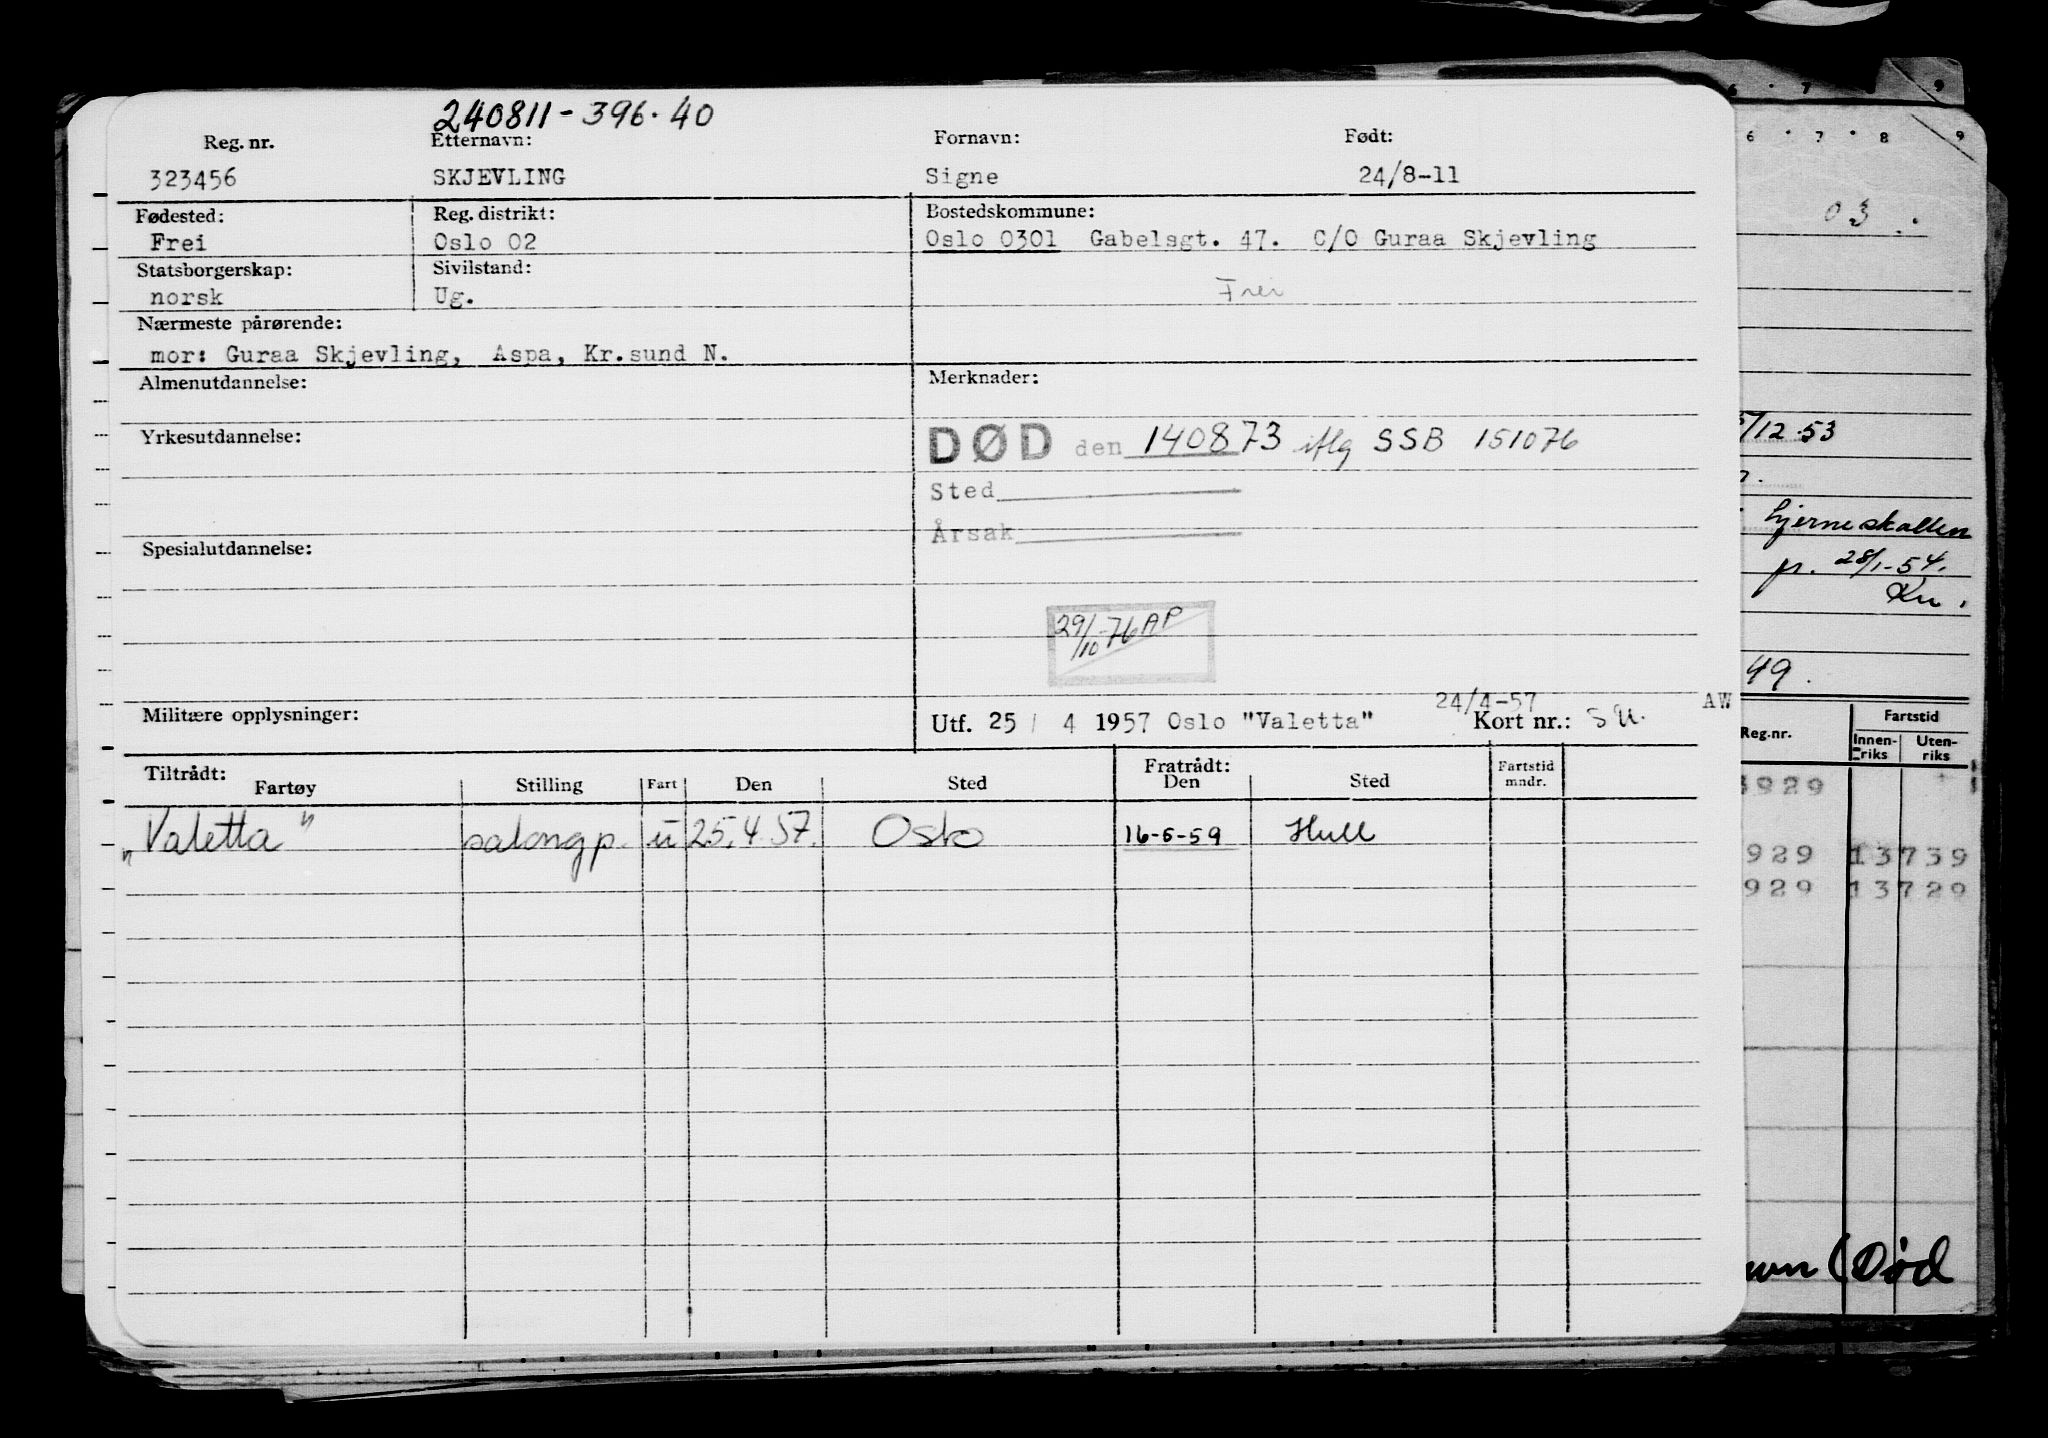 240811-396.40
Reg. nr. Etternavn: Fornavn: Født:
323456 SKJEVLING Signe 24/8-11
Fødested: Reg. distrikt: Bostedskommune:
Frei Oslo 02 Oslo 0301 Gabelsgt. 47. C/O Guraa Skjevling
Statsborgerskap: Sivilstand:
norsk Ug. Frei
Nærmeste pårørende:
mor: Guraa Skjevling, Aspa, Kr.sund N.
Almenutdannelse: Merknader:
Yrkesutdannelse: DØD den 140873 iflg SSB 151076
Sted
Årsak
Spesialutdannelse:
29/10-76 AP
24/4-57 AW
Militære opplysninger: Utf. 25 / 4 1957 Oslo "Valetta" Kort nr.: s u.
Tiltrådt: Fratrådt: Fartstid
Fartøy Stilling Fart Den Sted Den Sted mndr.
"Valetta" salongp. u 25.4.57. Oslo 16-5-59 Hull
6 7 8 9
6 7 8 9
03
/12.53
hjerneskallen
pr. 28/1-54.
Kn.
49.
Reg.nr. Fartstid
Innenriks Utenriks
929
929 13739
929 13729
(Død